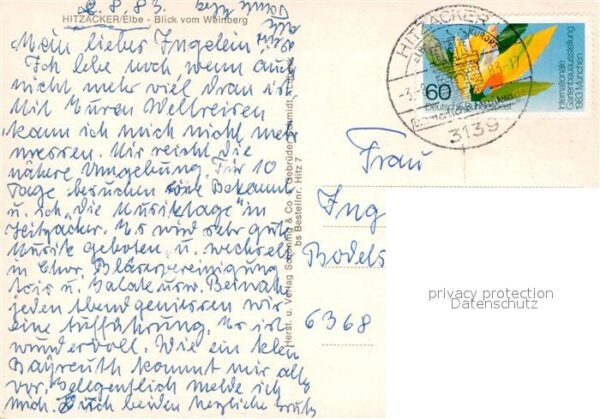 2.8.83.
HITZACKER/Elbe - Blick vom Weinberg
Mein lieber Ingelein!
Ich lebe noch, wenn auch
nicht mehr viel dran ist
Mit Euren Weltreisen
kann ich mich nicht mehr
messen. Mir reicht die
nähere Umgebung. Für 10
Tage besuchen eine Bekannt
u. ich "die Musiktage" in
Hitzacker. Es wird sehr gute
Musik geboten u. wechseln
in Chor, Bläservereinigung
Trio u. Galate usw. Beinahe
jeden Abend geniessen wir
eine Aufführung. Es ist
wundervoll. Wie ein klein
Bayreuth kommt mir alles
vor. Gelegentlich melde ich
mich. Euch beiden herzliche Grüße
Herst. u. Verlag Schöning & Co · Gebrüder Schmidt,
bs Bestellnr. Hitz 7
HITZACKER
3139
60
Deutsche Bundespost
Internationale
Gartenbauausstellung
1983 München
Frau
Ing
Bodels
6368
privacy protection
Datenschutz